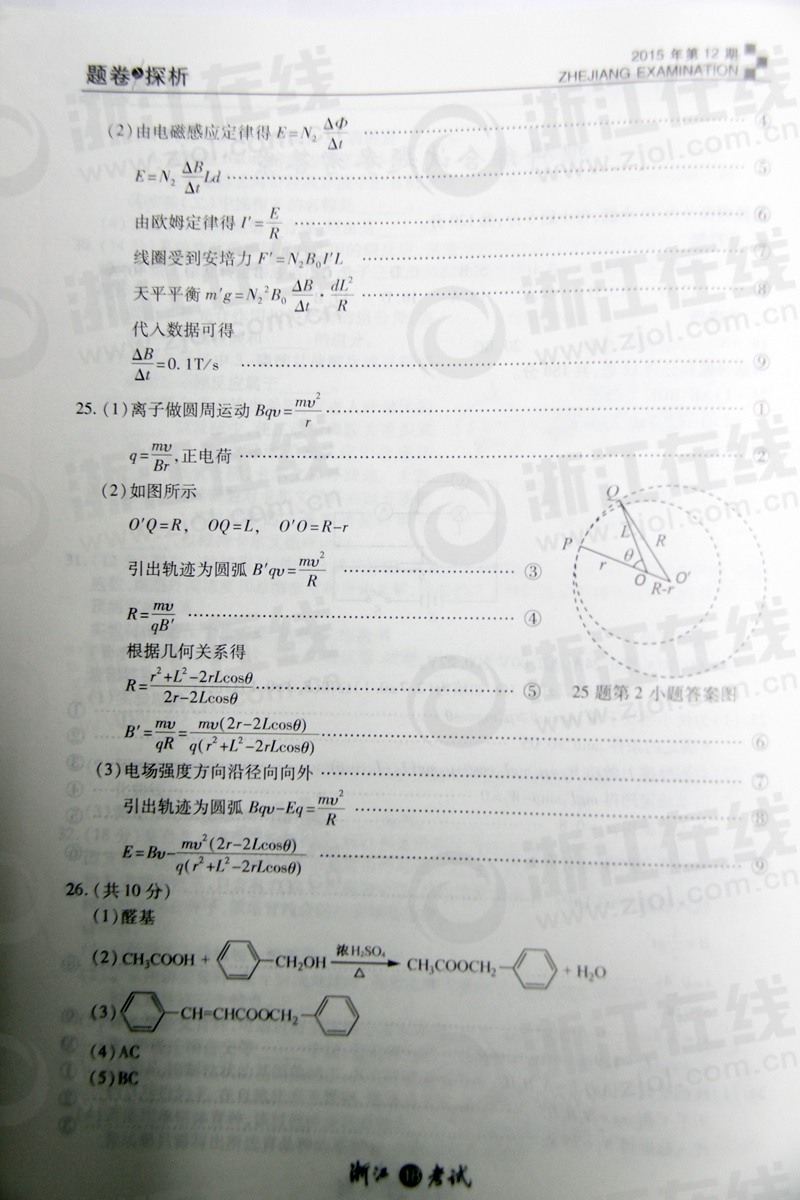 题卷与探析
2015 年第 12 期
ZHEJIANG EXAMINATION
(2)由电磁感应定律得 E=N₂ ΔΦ/Δt ④
E=N₂ ΔB/Δt Ld ⑤
由欧姆定律得 I′= E/R ⑥
线圈受到安培力 F′=N₂B₀I′L ⑦
天平平衡 m′g=N₂²B₀ ΔB/Δt · dL²/R ⑧
代入数据可得
ΔB/Δt=0.1T/s ⑨
25.(1)离子做圆周运动 Bqv= mv²/r ①
q= mv/Br ,正电荷 ②
(2)如图所示
O′Q=R, OQ=L, O′O=R-r
引出轨迹为圆弧 B′qv= mv²/R ③
R= mv/qB′ ④
根据几何关系得
R= (r²+L²-2rLcosθ)/(2r-2Lcosθ) ⑤
B′= mv/qR = mv(2r-2Lcosθ)/q(r²+L²-2rLcosθ) ⑥
Q
P
L
R
r
θ
O
O′
R-r
25 题第 2 小题答案图
(3)电场强度方向沿径向向外 ⑦
引出轨迹为圆弧 Bqv-Eq= mv²/R ⑧
E=Bv- mv²(2r-2Lcosθ)/q(r²+L²-2rLcosθ) ⑨
26.(共 10 分)
(1)醛基
(2) CH₃COOH + CH₂OH 浓H₂SO₄ △ CH₃COOCH₂ + H₂O
(3) CH=CHCOOCH₂
(4)AC
(5)BC
浙江 考试
浙江在线
www.zjol.com.cn